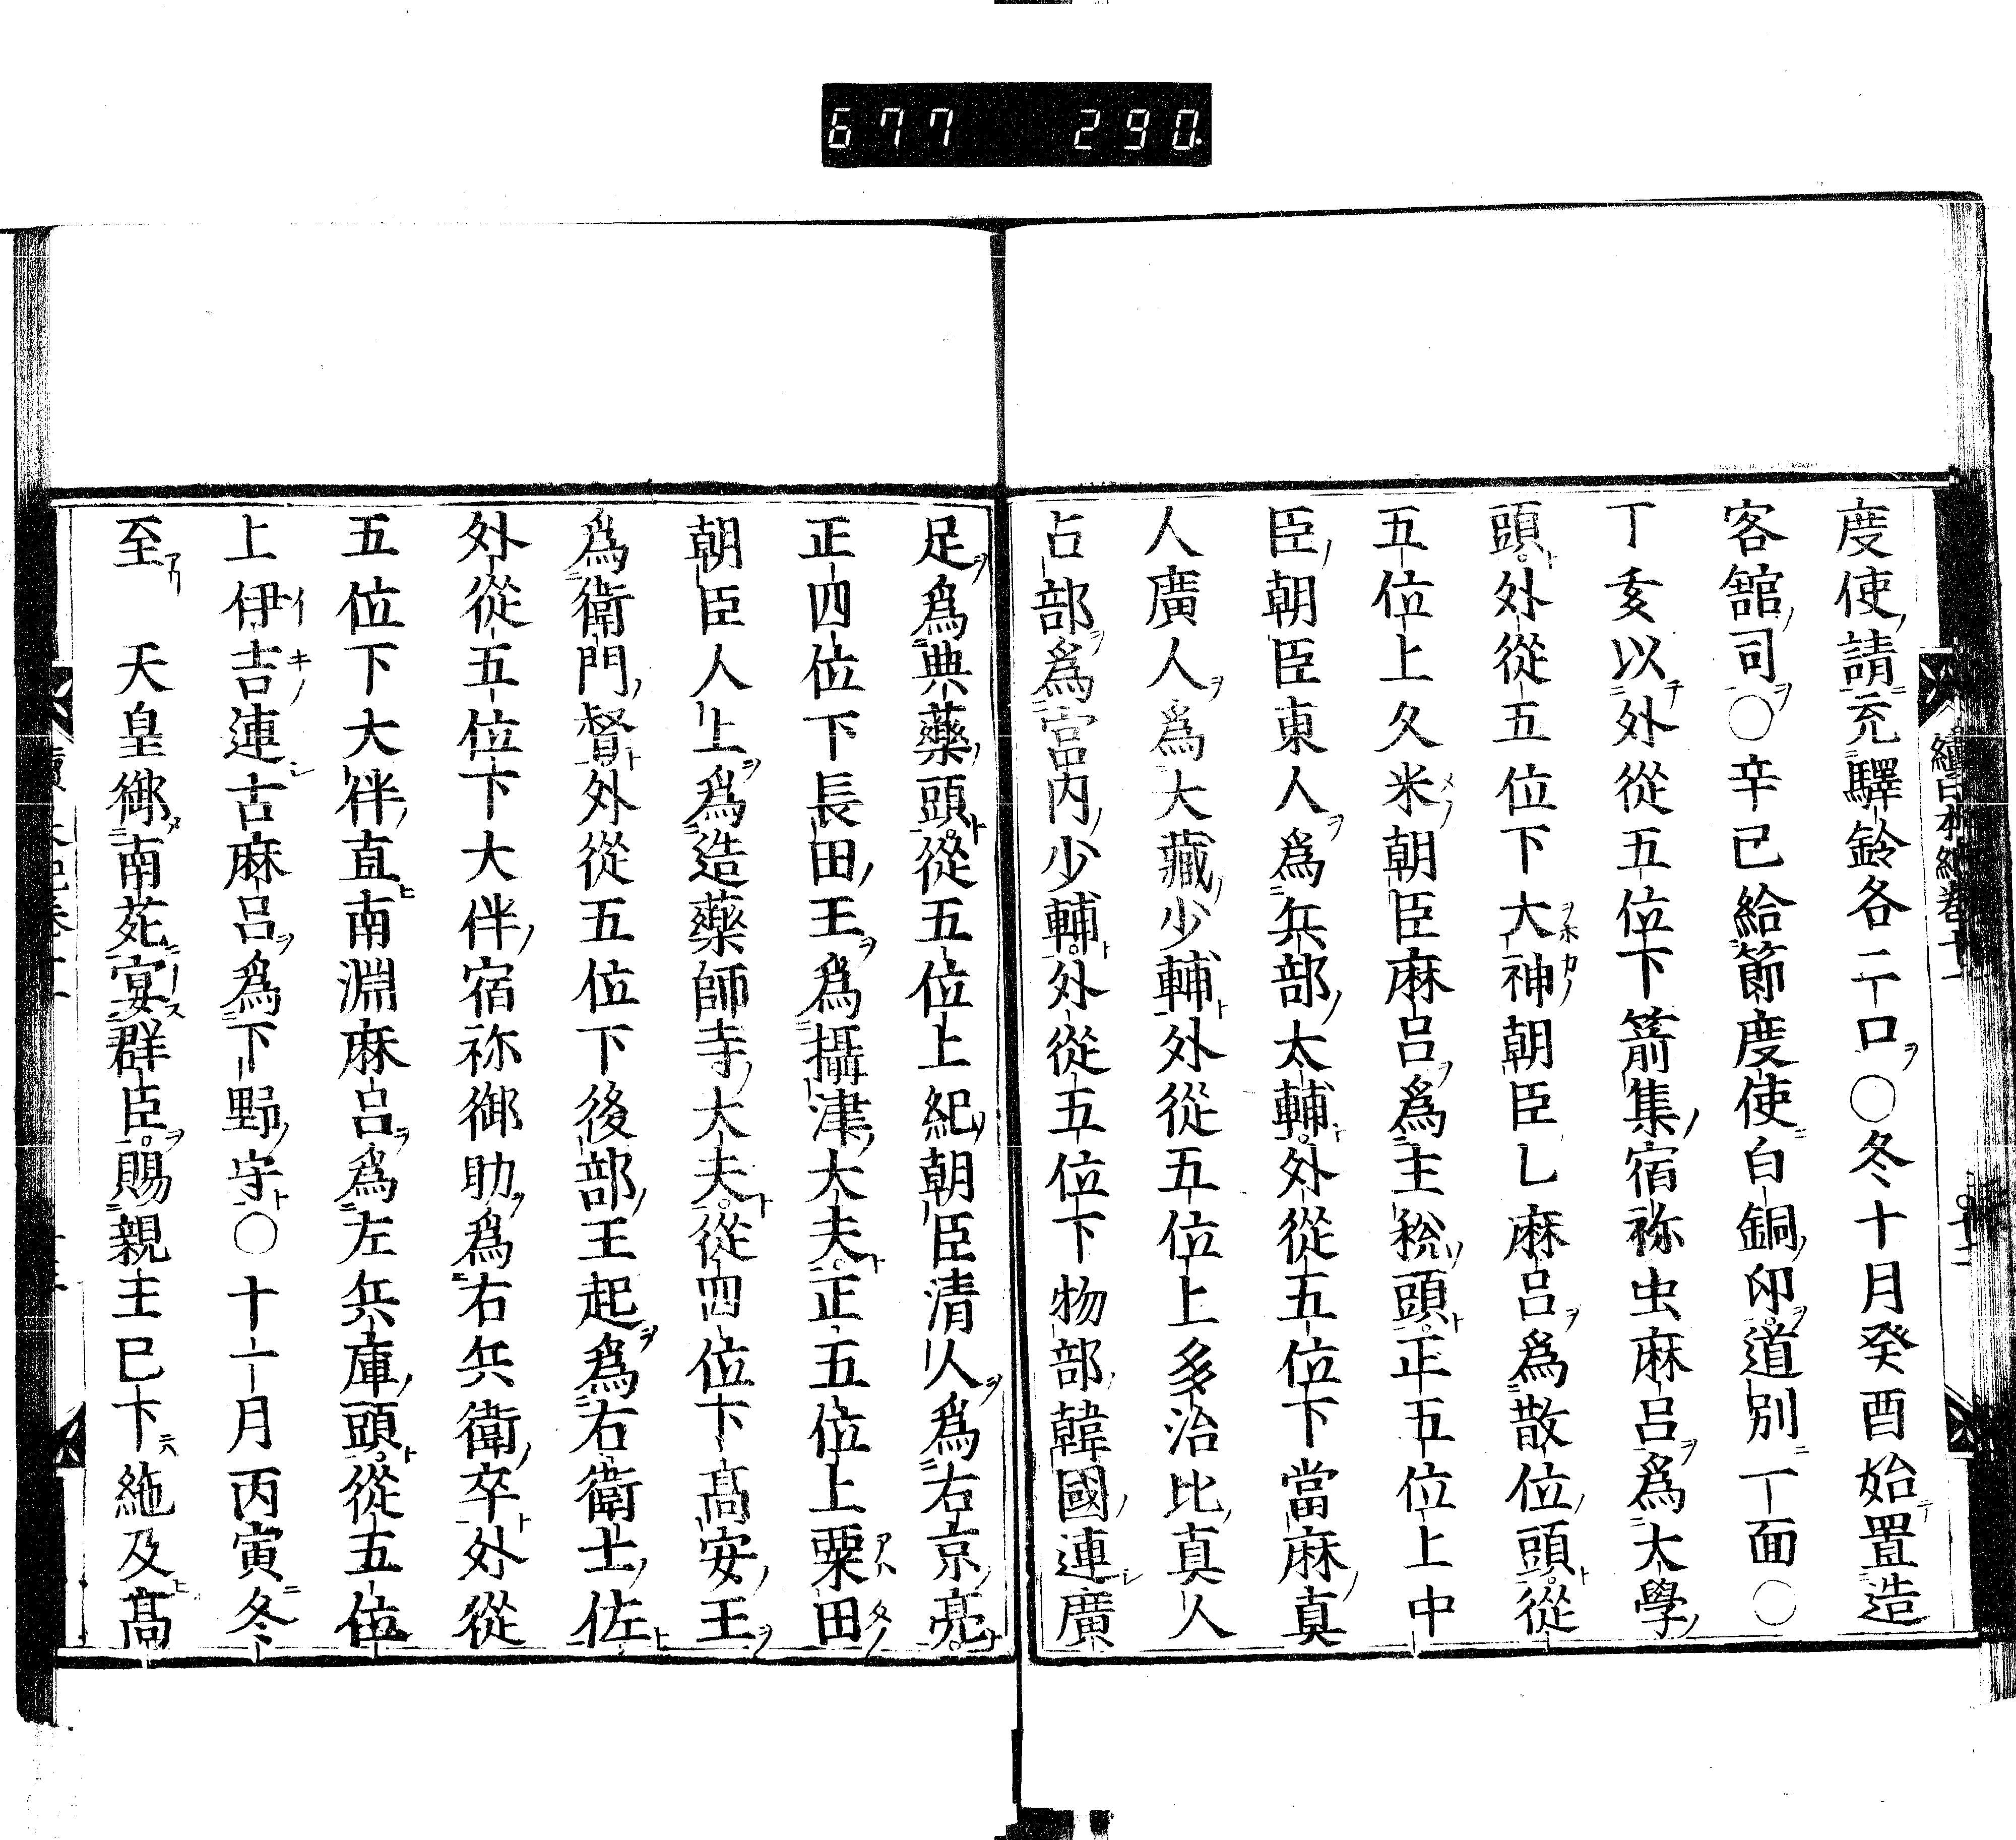 677 290
續日本紀卷十一
度使請充驛鈴各二口○冬十月癸酉始置造
客舘司○辛巳給節度使白銅印道別一面○
丁亥以外從五位下箭集宿祢虫麻呂爲大學
頭外從五位下大神朝臣乙麻呂爲散位頭從
五位上久米朝臣麻呂爲主税頭正五位上中
臣朝臣東人爲兵部大輔外從五位下當麻真
人廣人爲大藏少輔外從五位上多治比真人
占部爲宮内少輔外從五位下物部韓國連廣
足爲典藥頭從五位上紀朝臣清人爲右京亮
正四位下長田王爲攝津大夫正五位上粟田
朝臣人上爲造藥師寺大夫從四位下髙安王
爲衛門督外從五位下後部王起爲右衛士佐
外從五位下大伴宿祢御助爲右兵衛卒外從
五位下大伴直南淵麻呂爲左兵庫頭從五位
上伊吉連古麻呂爲下野守○十一月丙寅冬
至　天皇御南苑宴群臣賜親王已下絁及髙